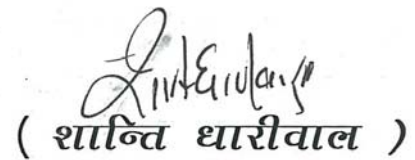 ( शान्ति धारीवाल )